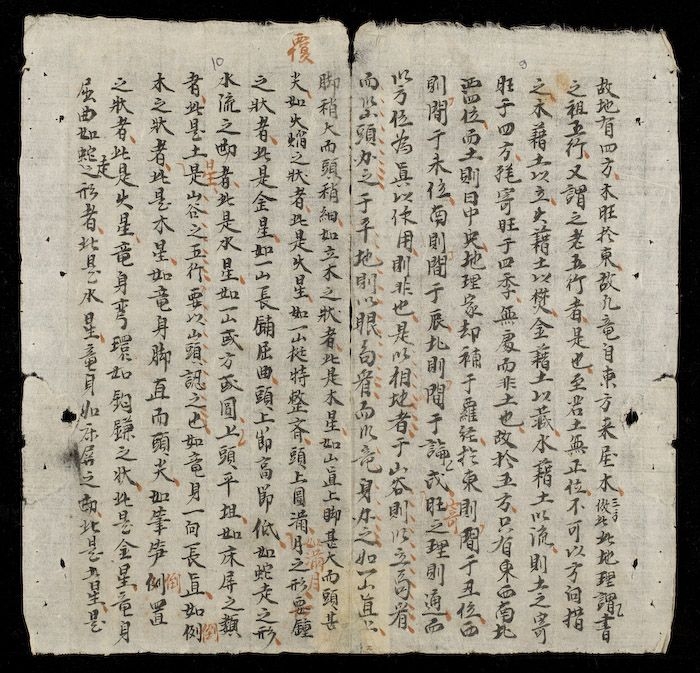 9
故地有四方木旺於東故凡竜自東方来屋木倣此此地理謂書
之祖五行又謂之老五行者是也至若土無正位不可以方向措
之木藉土以立火藉土以熒金藉土以藏水藉土以流則土之寄
旺于四方雖寄旺于四季無處而非土也故於五方只有東西南北
四位而土則曰中央地理家却補于羅經於東則間于丑位西
則間于未位南則間于辰北則間于戌旺之理則通而
以方位為真以作用則非也是以相地者于山谷則以立高眉
而以山頭分之于平地則以眼為眉而以竜身分之如一山直上
10
覆
脚稍大而頭稍細如立木之狀者此是木星如山直上脚甚大而頭甚
尖如火熖之狀者此是火星如一山挺特整斉頭上圓滿月之形要鍾
如滿月
之狀者此是金星如一山長鋪屈曲頭上節高節低如蛇走之形
水流之者此是水星如一山或方或圓上頭平坦如床屏之類
倒
者此是土星是山谷之五行要以山頭認之也如竜身一向長直如倒
木之狀者此是木星如竜身脚直而頭尖如筆笋倒置
倒
之狀者此是火星竜身弯環如鈎鐮之狀此是金星竜身
屈曲如蛇走之形者此是水星竜身如床屏之此是土星是